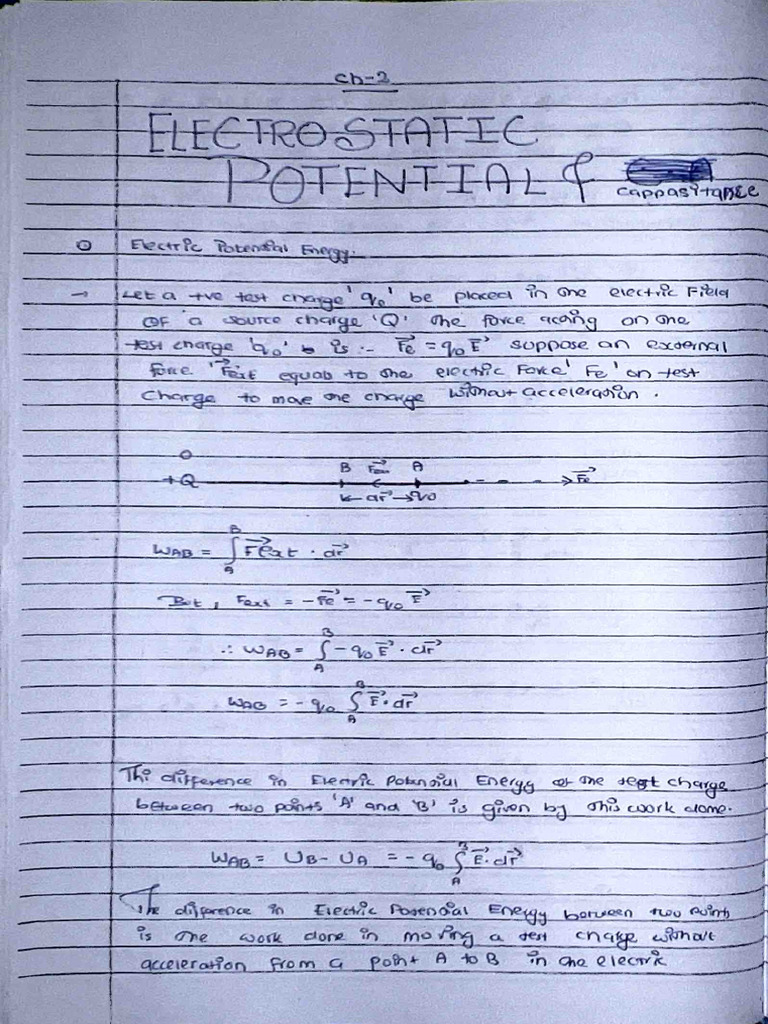 Ch-2
ELECTROSTATIC
POTENTIAL &
cappasitance
Electric Potential Energy:
→ Let a +ve test charge 'q₀' be placed in the electric Field
OF a source charge 'Q' The force acting on the
test charge 'q₀' is :- F⃗e = q₀ E⃗ suppose an external
force 'F⃗ext equals to the electric Force' Fe' on test
Charge to move the charge without acceleration.
B F⃗ext A
+Q F⃗e
← dr⃗ → q₀
WAB = ∫ᴬᴮ F⃗ext · dr⃗
But, Fext = -F⃗e = -q₀ E⃗
∴ WAB = ∫ᴬᴮ -q₀ E⃗ · dr⃗
WAB = -q₀ ∫ᴬᴮ E⃗ · dr⃗
Thi difference in Electric Potential Energy of the test charge
between two points 'A' and 'B' is given by this work done.
WAB = UB - UA = -q₀ ∫ᴬᴮ E⃗ · dr⃗
The difference in Electric Potential Energy between two points
is the work done in moving a test charge without
acceleration from a point A to B in the electric